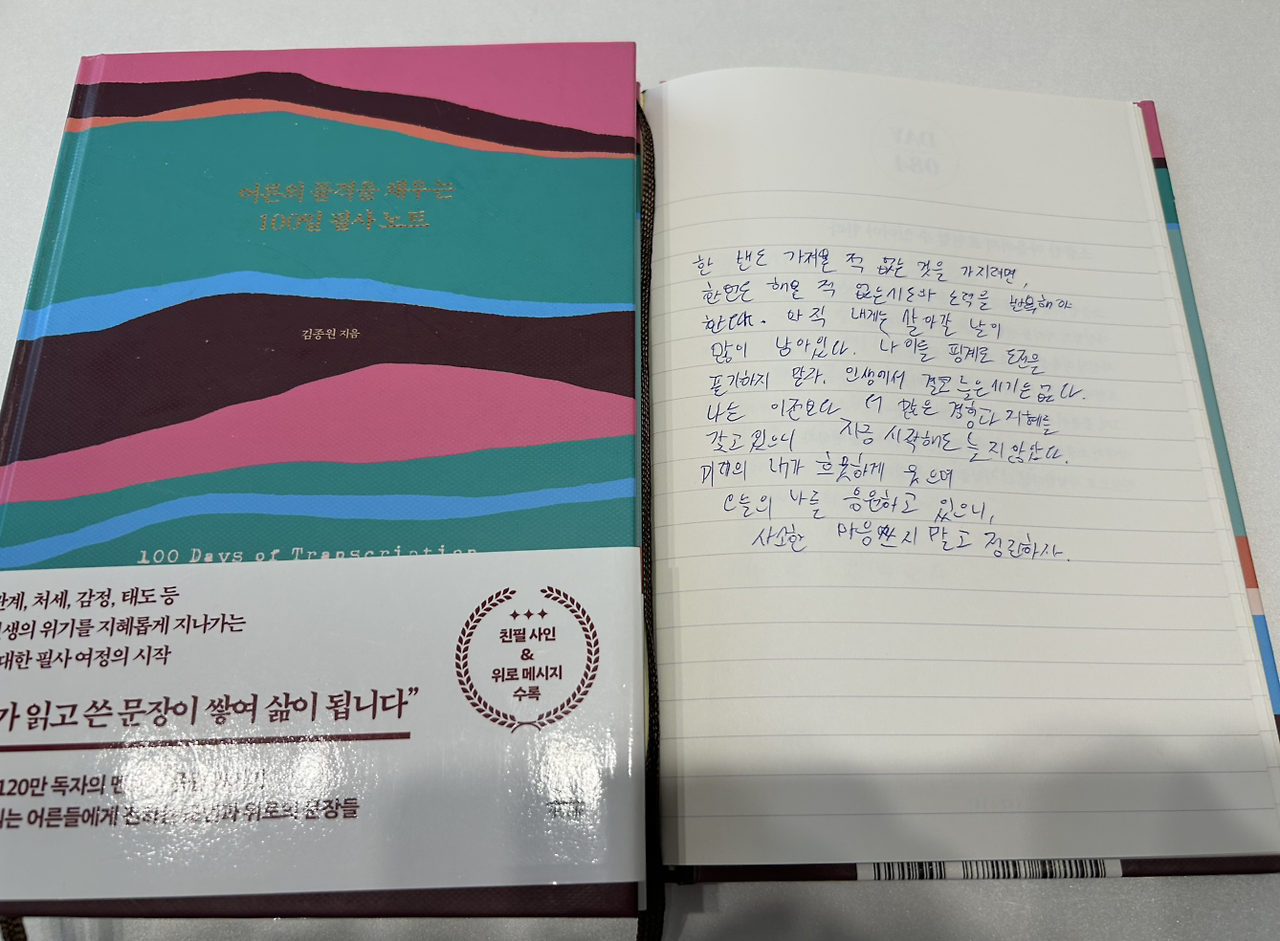 어른의 품격을 채우는
100일 필사 노트
김종원 지음
100 Days of Transcription
관계, 처세, 감정, 태도 등
생의 위기를 지혜롭게 지나가는
대한 필사 여정의 시작
가 읽고 쓴 문장이 쌓여 삶이 됩니다”
120만 독자의
는 어른들에게 위로의 문장들
친필 사인
&
위로 메시지
수록
DAY
084
한 번도 가져본 적 없는 것을 가지려면,
한번도 해본 적 없는 시도와 노력을 반복해야
한다. 아직 내게는 살아갈 날이
많이 남아있다. 나이를 핑계로 도전을
포기하지 말라. 인생에서 결코 늦은 시기는 없다.
나는 이전보다 더 많은 경험과 지혜를
갖고 있으니 지금 시작해도 늦지 않았다.
미래의 내가 흐뭇하게 웃으며
오늘의 나를 응원하고 있으니,
사소한 마음 쓰지 말고 정진하자.